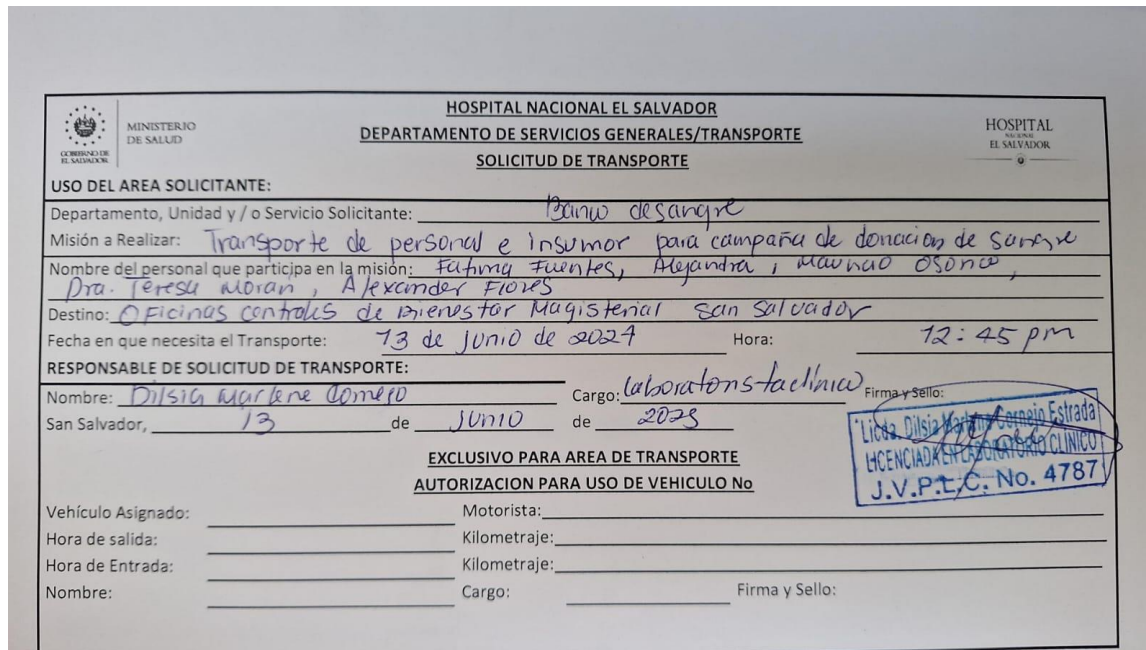 GOBIERNO DE
EL SALVADOR
MINISTERIO
DE SALUD
HOSPITAL NACIONAL EL SALVADOR
DEPARTAMENTO DE SERVICIOS GENERALES/TRANSPORTE
SOLICITUD DE TRANSPORTE
HOSPITAL
NACIONAL
EL SALVADOR
USO DEL AREA SOLICITANTE:
Departamento, Unidad y / o Servicio Solicitante: Banco de sangre
Misión a Realizar: Transporte de personal e insumor para campaña de donacion de sangre
Nombre del personal que participa en la misión: Fatima Fuentes, Alejandra, Mauricio Osorio,
Dra. Teresa Moran, Alexander Flores
Destino: Oficinas centrales de Bienestar Magisterial San Salvador
Fecha en que necesita el Transporte: 13 de junio de Hora: 12:45 pm
RESPONSABLE DE SOLICITUD DE TRANSPORTE:
Nombre: Dilsia Marlene Cornejo Cargo: laboratorista clínico Firma y Sello:
San Salvador, 13 de junio de
Licda. Dilsia Marlene Cornejo Estrada
LICENCIADA EN LABORATORIO CLINICO
J.V.P.L.C. No. 4787
EXCLUSIVO PARA AREA DE TRANSPORTE
AUTORIZACION PARA USO DE VEHICULO No
Vehículo Asignado: Motorista:
Hora de salida: Kilometraje:
Hora de Entrada: Kilometraje:
Nombre: Cargo: Firma y Sello: